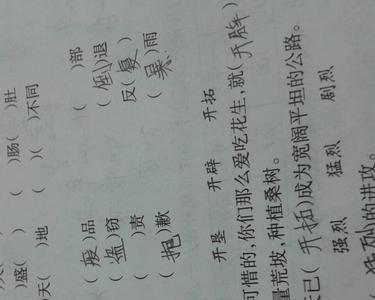 )盛(　)　(　)肠(　)肚
天(　)地　(　)(　)不同
(废)品　(　)部
(盗)窃　(倒)退
(　)责　反(复)
(抱)歉　(　)雨
开垦　开辟　开拓
可惜的,你们那么爱吃花生,就(开辟)
量荒坡,种植桑树。
已(开拓)成为宽阔平坦的公路。
强烈　猛烈　剧烈
猛烈的进攻。